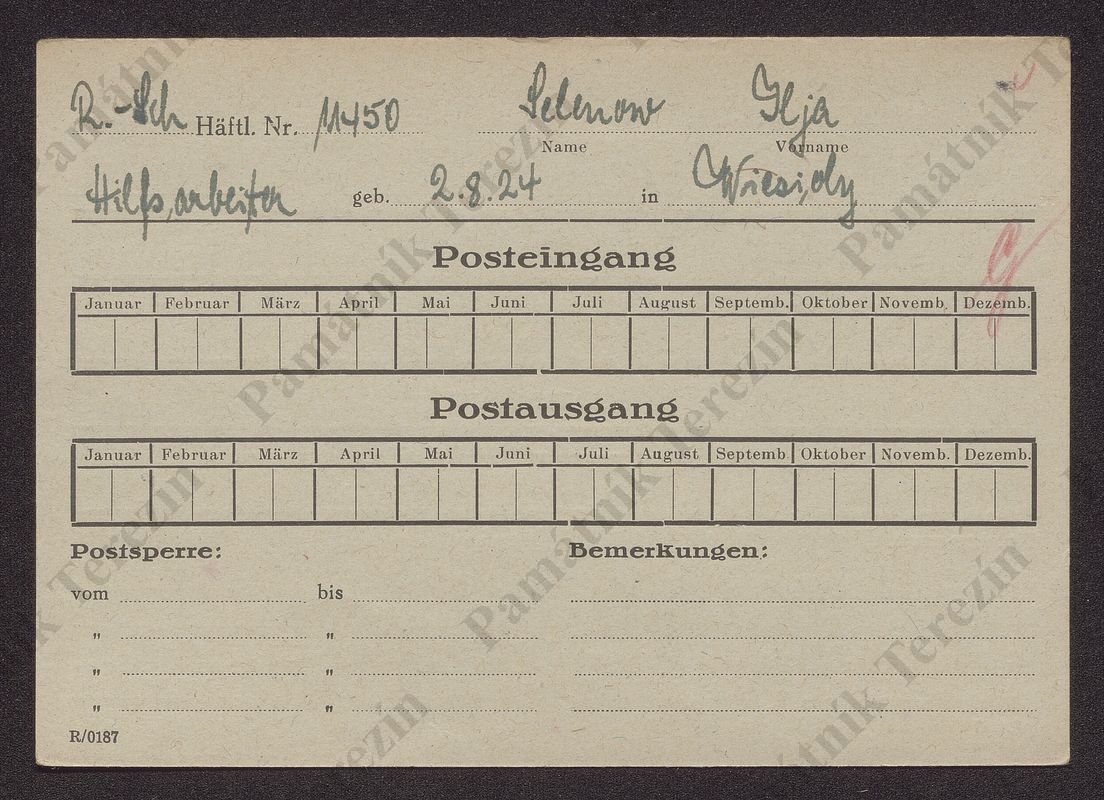 R.-Sch Häftl. Nr. 11450 Selenow Ilja
Name Vorname
Hilfsarbeiter geb. 2.8.24 in
G
Posteingang
Januar Februar März April Mai Juni Juli August Septemb. Oktober Novemb. Dezemb.
Postausgang
Januar Februar März April Mai Juni Juli August Septemb. Oktober Novemb. Dezemb.
Postsperre: Bemerkungen:
vom bis
" "
" "
" "
R/0187
Památník Terezín